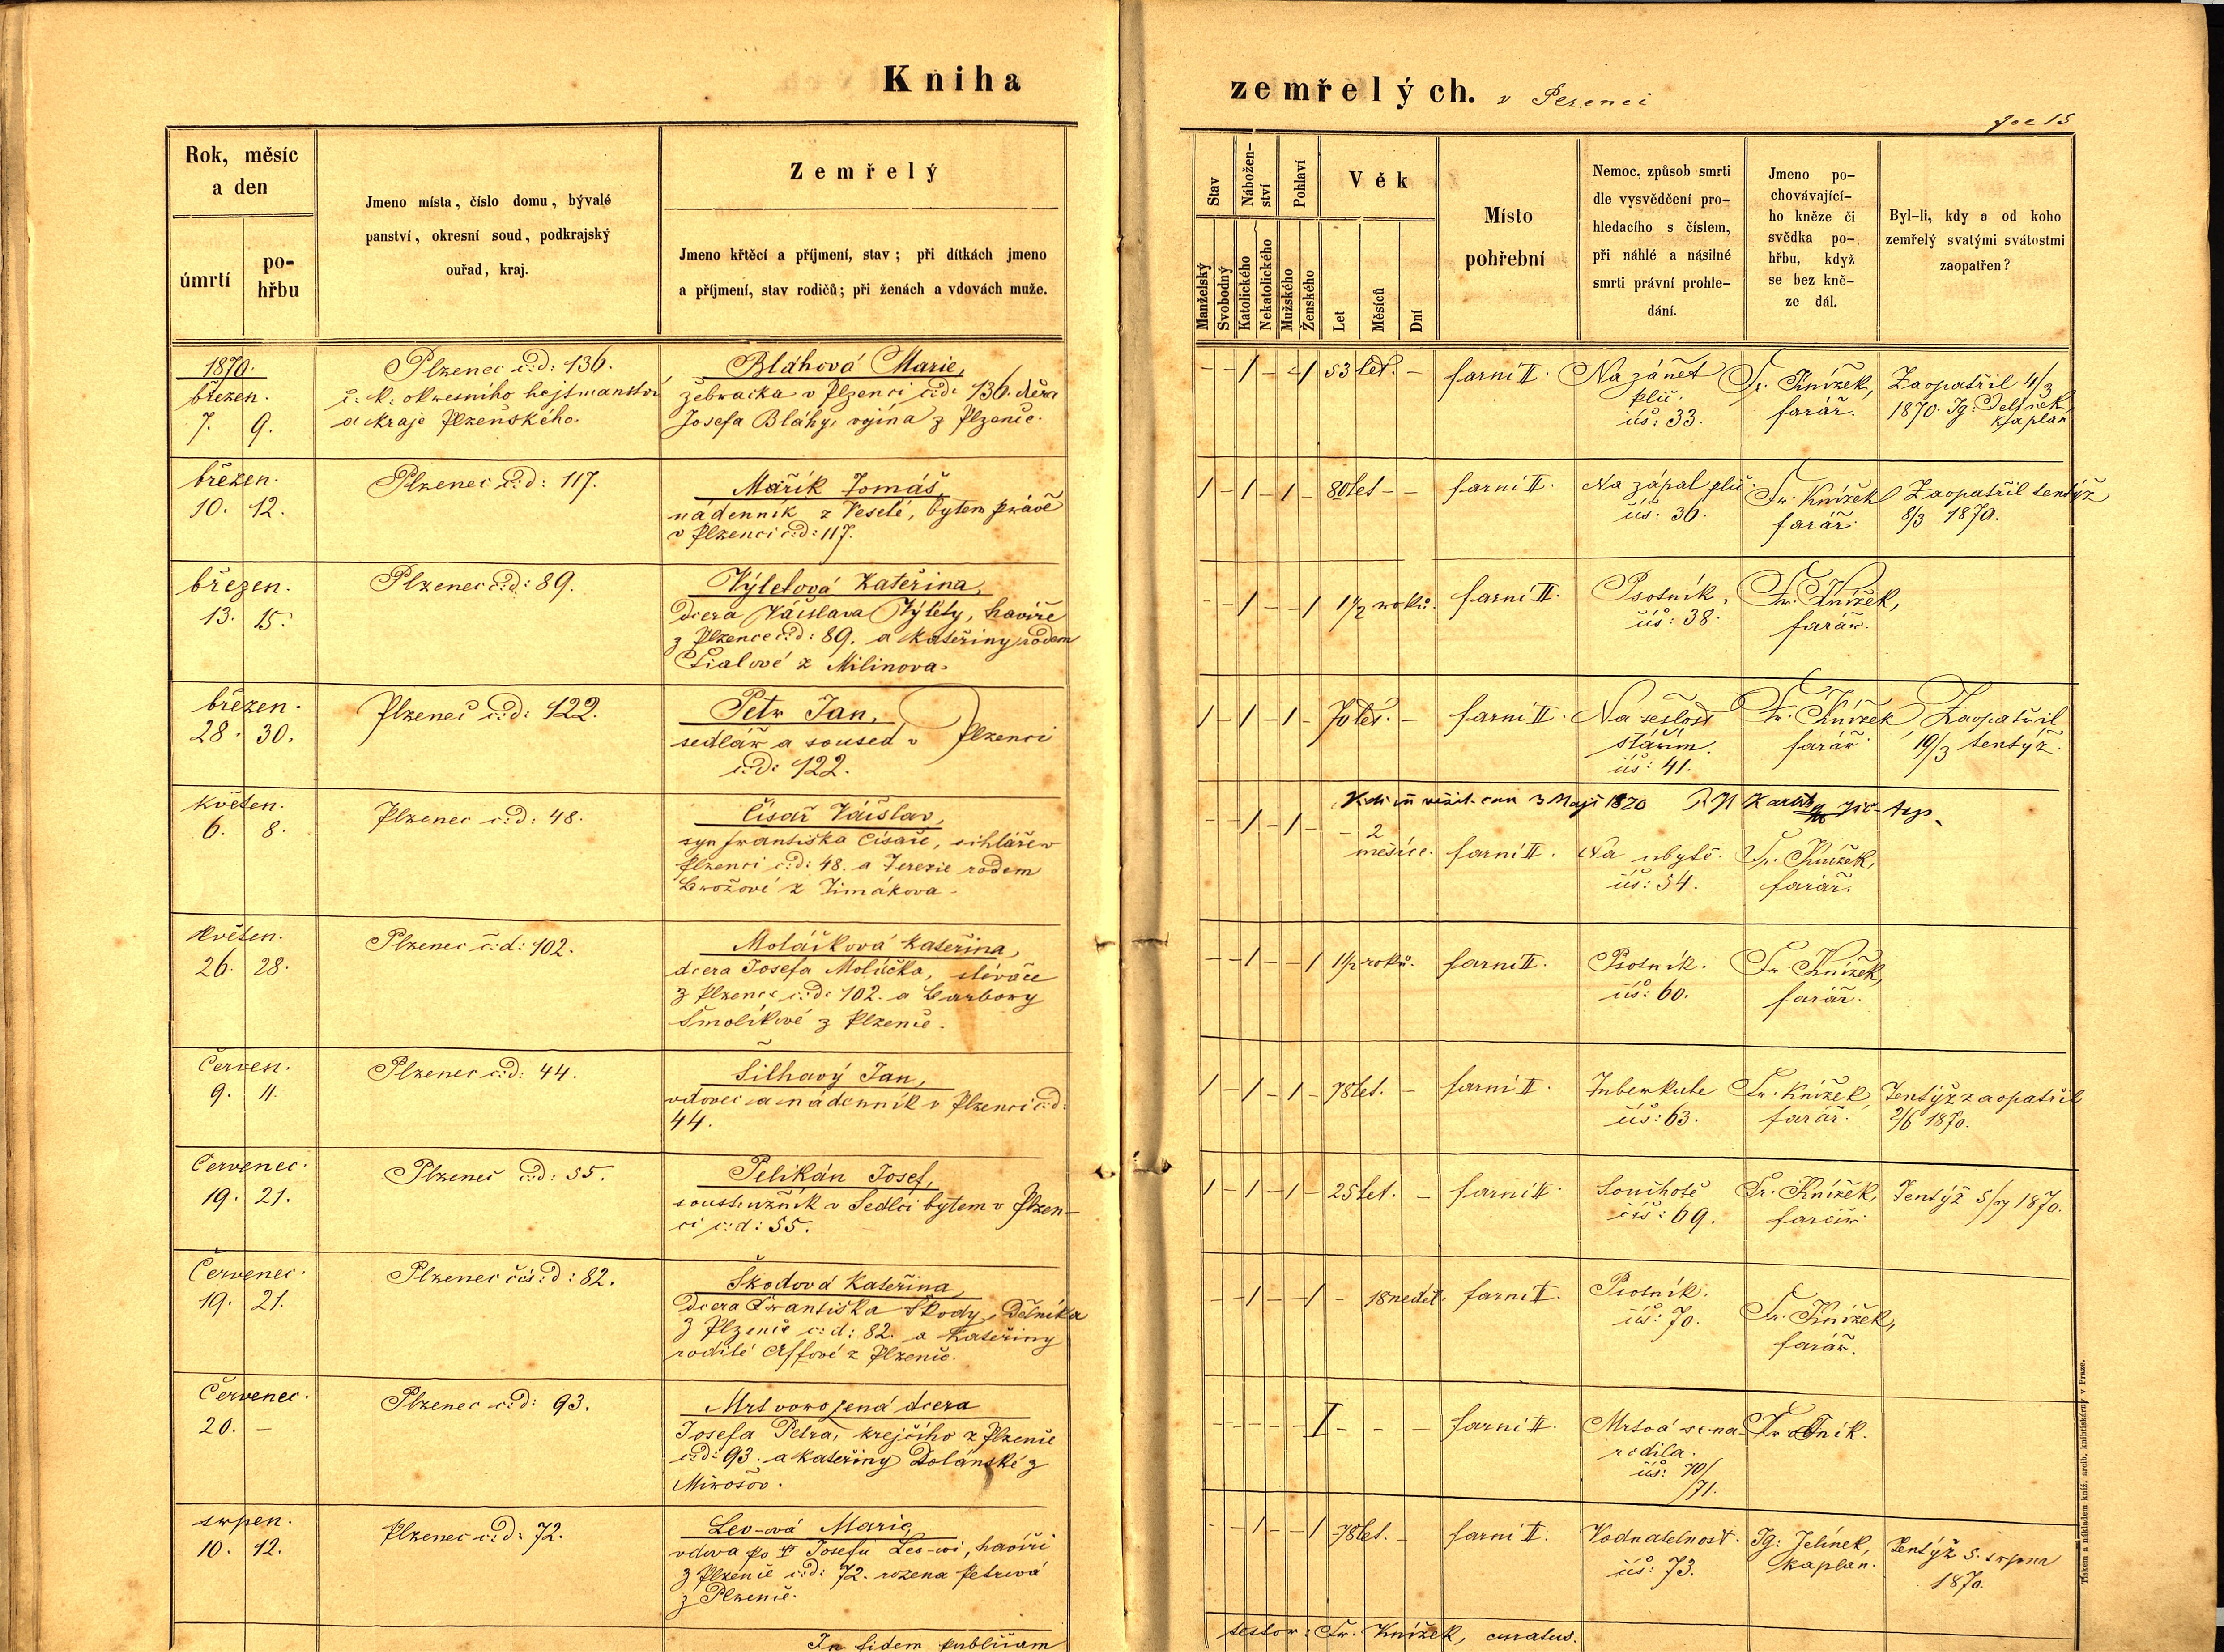 Kniha
zemřelých. v
15
Rok, měsíc
a den
úmrtí
po-
hřbu
Jmeno místa, číslo domu, bývalé
panství, okresní soud, podkrajský
ouřad, kraj.
Zemřelý
Jmeno křtěcí a příjmení, stav; při dítkách jmeno
a příjmení, stav rodičů; při ženách a vdovách muže.
Stav
Manželský
Svobodný
Nábožen-
ství
Katolického
Nekatolického
Pohlaví
Mužského
Ženského
Věk
Let
Měsíců
Dní
Místo
pohřební
Nemoc, způsob smrti
dle vysvědčení pro-
hledacího s číslem,
při náhlé a násilné
smrti právní prohle-
dání.
Jmeno po-
chovávající-
ho kněze či
svědka po-
hřbu, když
se bez kně-
ze dál.
Byl-li, kdy a od koho
zemřelý svatými svátostmi
zaopatřen?
1870.
březen.
7. 9.
Plzenec č:d: 136.
c. k. okresního hejtmanství
a kraje Plzeňského.
Bláhová Marie,
žebračka v Plzenci č:d: 136. dcera
Josefa Bláhy, vojína z Plzence.
- 1 - - 1 53 let. -
farní II.
Na zánět
plic.
čís: 33.
Fr. Knížek,
farář.
Zaopatřil 4/3
1870. Ig:
kaplan
březen.
10. 12.
Plzenec č:d: 117.
Mařík Tomáš
nádenník z Veselé, bytem právě
v Plzenci č:d: 117.
1 - 1 - 1 - 80 let - -
farní II.
Na zápal plic.
čís: 36.
Fr. Knížek
farář.
Zaopatřil tentýž
8/3 1870.
březen.
13. 15.
Plzenec č:d: 89.
Výletová Kateřina,
dcera Václava Výlety, havíře
z Plzence č:d: 89. a Kateřiny rodem
Fialové z Milinova.
- 1 - - 1 1 1/2 roků.
farní II.
Psotník,
čís: 38.
Fr. Knížek,
farář.
březen.
28. 30.
Plzenec č:d: 122.
Petr Jan,
sedlář a soused v Plzenci
č:d: 122.
1 - 1 - 1 - 70 let. -
farní II.
Na sešlost
stářím.
čís: 41.
Fr. Knížek
farář
Zaopatřil
19/3 tentýž.
3 Maji 1870
květen.
6. 8.
Plzenec č:d: 48.
Císař Václav,
syn Františka Císaře, cihláře v
Plzenci č:d: 48. a Terezie rodem
Brožové z Timákova.
- 1 - 1 - - 2
měsíce.
farní II.
Na ubytě.
čís: 54.
Fr. Knížek,
farář.
květen.
26. 28.
Plzenec č:d: 102.
Moláčková Kateřina,
dcera Josefa Moláčka, slévače
z Plzence č:d: 102. a Barbory
Smolíkové z Plzence.
- - 1 - - 1 1 1/2 roků.
farní II.
Psotník.
čís: 60.
Fr. Knížek,
farář.
Červen.
9. 11.
Plzenec č:d: 44.
Šilhavý Jan,
vdovec a nádenník v Plzenci č:d:
44.
1 - 1 - 1 - 78 let. -
farní II.
Tuberkule
čís: 63.
Fr. Knížek
farář.
Tentýž zaopatřil
2/6 1870.
Červenec.
19. 21.
Plzenec č:d: 55.
Pelikán Josef,
soustružník v Sedlci bytem v Plzen-
ci č:d: 55.
1 - 1 - 1 - 25 let. -
farní II.
Souchotě
čís: 69.
Fr. Knížek,
farář.
Tentýž 5/7 1870.
Červenec.
19. 21.
Plzenec čís:d: 82.
Škodová Kateřina,
dcera Františka Škody, dělníka
z Plzence č:d: 82. a Kateřiny
rodilé Affové z Plzence.
- 1 - - 1 - 18 neděl.
farní II.
Psotník.
čís: 70.
Fr. Knížek,
farář.
Červenec.
20. -
Plzenec č:d: 93.
Mrtvorozená dcera
Josefa Petra, krejčího z Plzence
č:d: 93. a Kateřiny Dolanské z
Mirošov.
- - - - - 1 - - -
farní II.
Mrtvá se na-
rodila.
čís: 70/
/71.
srpen.
10. 12.
Plzenec č:d: 72.
Lev-ová Marie,
vdova po † Josefu Lev-ovi, havíři
z Plzence č:d: 72. rozená Petrová
z Plzence.
- - 1 - - 1 78 let. -
farní II.
Vodnatelnost.
čís: 73.
Ig: Jelínek,
kaplan.
Tentýž 5. srpna
1870.
In fidem publicam
testor: Fr. Knížek, curatus.
Tiskem a nákladem kníž. arcib. knihtiskárny v Praze.